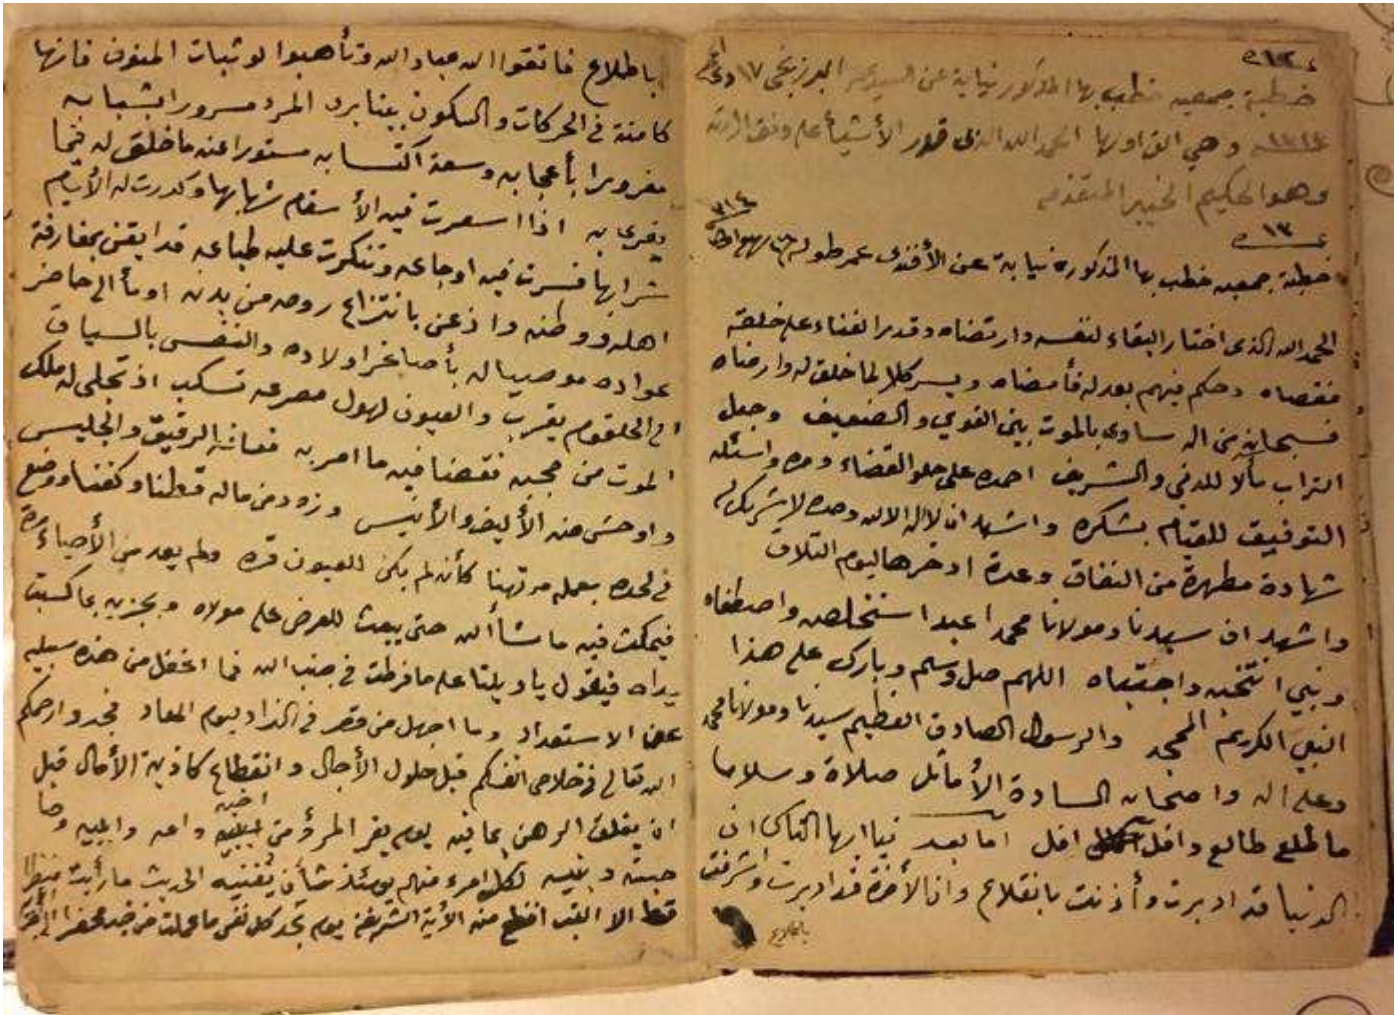 ١٢
خطبة جمعيه خطب بها المذكور نيابة عن السيد البرزنجي ١٧
وهي التى اولها الحمد الله الذى قدر الأشيأ على وفق ارادته
وهو الحكيم الخبير المتقدمه
١٣
خطبة جمعيه خطب بها المذكوره نيابة عن الأفندى عمر
الحمد الله الذى اختار البقاء لنفسه وارتضاه وقدر الفناء على خلقه
فقضاه وحكم فيهم بعدله فأمضاه ويسر كلا لما خلق له وارضاه
فسبحانه من اله ساوى بالموت بين القوي والضعيف وجعل
التراب مآلا للدني والشريف احمده على حلو القضاء ومره واسئله
التوفيق للقيام بشكره واشهد ان لااله الا الله وحده لا شريك له
شهادة مطهرة من النفاق وعدة ادخرها ليوم التلاق
واشهد ان سيدنا ومولانا محمدا عبدا استخلصه واصطفاه
ونبي انتخبه واجتباه اللهم صل وسلم وبارك على هذا
النبي الكريم الممجد والرسول الصادق العظيم سيدنا ومولانا محمد
وعلى اله واصحابه السادة الأماثل صلاة وسلاما
ماطلع طالع وافل افل اما بعد فيا ايها الناس ان
الدنيا قد ادبرت وأذنت بانقلاع وان الأخرة قد واشرفت
باطلاع
باطلاع فاتقوا الله عباد الله وتأهبوا لوثبات المنون فانها
كامنة فى الحركات والسكون بينا يرى المرء مسرورا بشبابه
مغرورا بأعجابه وسعة اكتسابه مستورا عنه ماخلق له فيما
يغرى به اذا اسعرت فيه الأسقام شهابها وكدرت له الأيام
شرابها فسرت فيه اوجاعه وتنكرت عليه طباعه قد ايقن بمفارقة
اهله ووطنه واذعن بانتزاع روحه من بدنه اومأ الى حاضر
عواده موصيا له بأصاغر اولاده والنفس بالسياق
الى الحلقوم يقرب والعيون لهول مصرعه تسكب اذ تجلى له ملك
الموت من حجبه فقضا فيه ما امر به فعافه الرفيق والجليس
واوحش منه الأليف والأنيس وزود من ماله قطنا وكفنا ووضع
فى لحده بعمله مرتهنا كأن لم يكن للعيون قره ولم يعد من الأحياء مرة
فيمكث فيه ماشأ الله حتى يبعث للعرض على مولاه ويجزيه بماكسبت
يداه فيقول ياويلتا على مافرطت فى جنب الله فما اغفل من هذه سبيله
عن الاستعداد وما اجهل من قصر فى الزاد ليوم المعاد فجدوا رحمكم
الله تعالى فى خلاص انفسكم قبل حلول الأجال وانقطاع كاذبة الأمال قبل
ان يغلق الرهن بما فيه يوم يفر المرؤ من اخيه وامه وابيه وصا
حبته وبنيه لكل امرء منهم يومئذ شأن يغنيه الحديث مارأيت منظرا
قط الا القبر افظع منه الأية الشريفة يوم تجد كل نفس ماعملت من خير محضرا